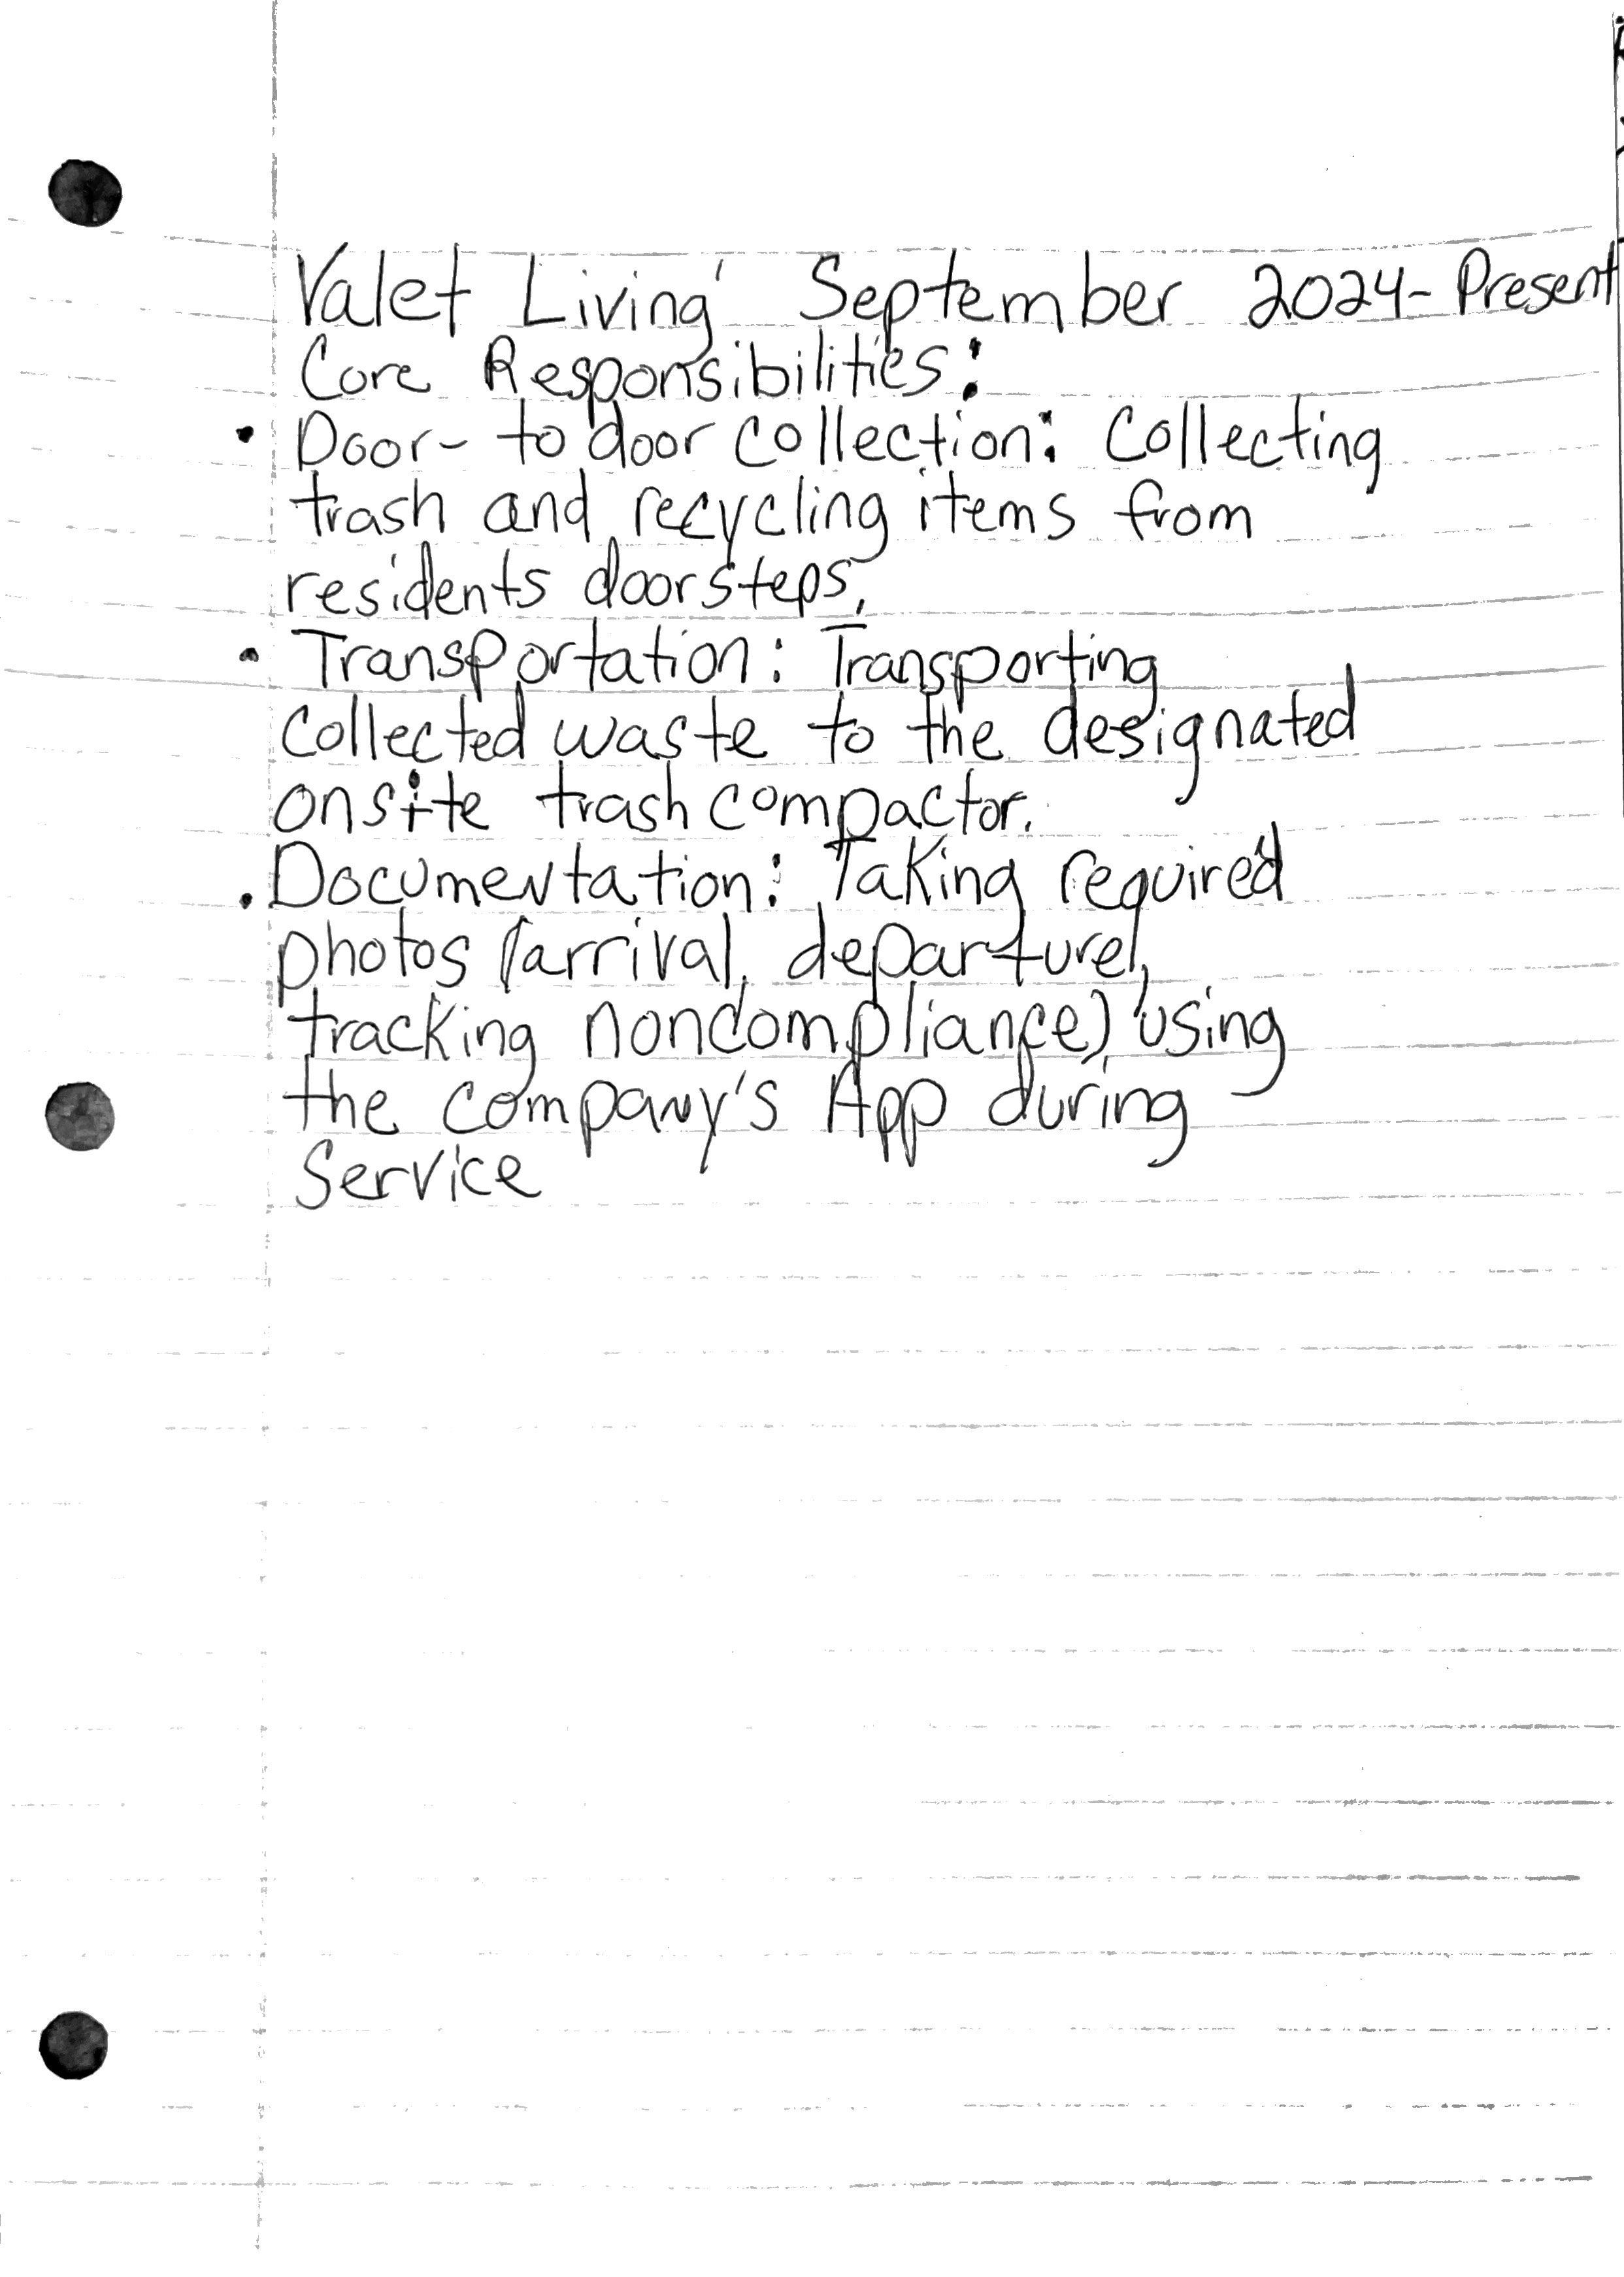 Valet Living September 2024- Present
Core Responsibilities:
• Door- to door collection: Collecting
trash and recycling items from
residents doorsteps.
• Transportation: Transporting
collected waste to the designated
onsite trash compactor.
• Documentation: Taking required
photos (arrival, departure,
tracking noncompliance) using
the company's App during
Service